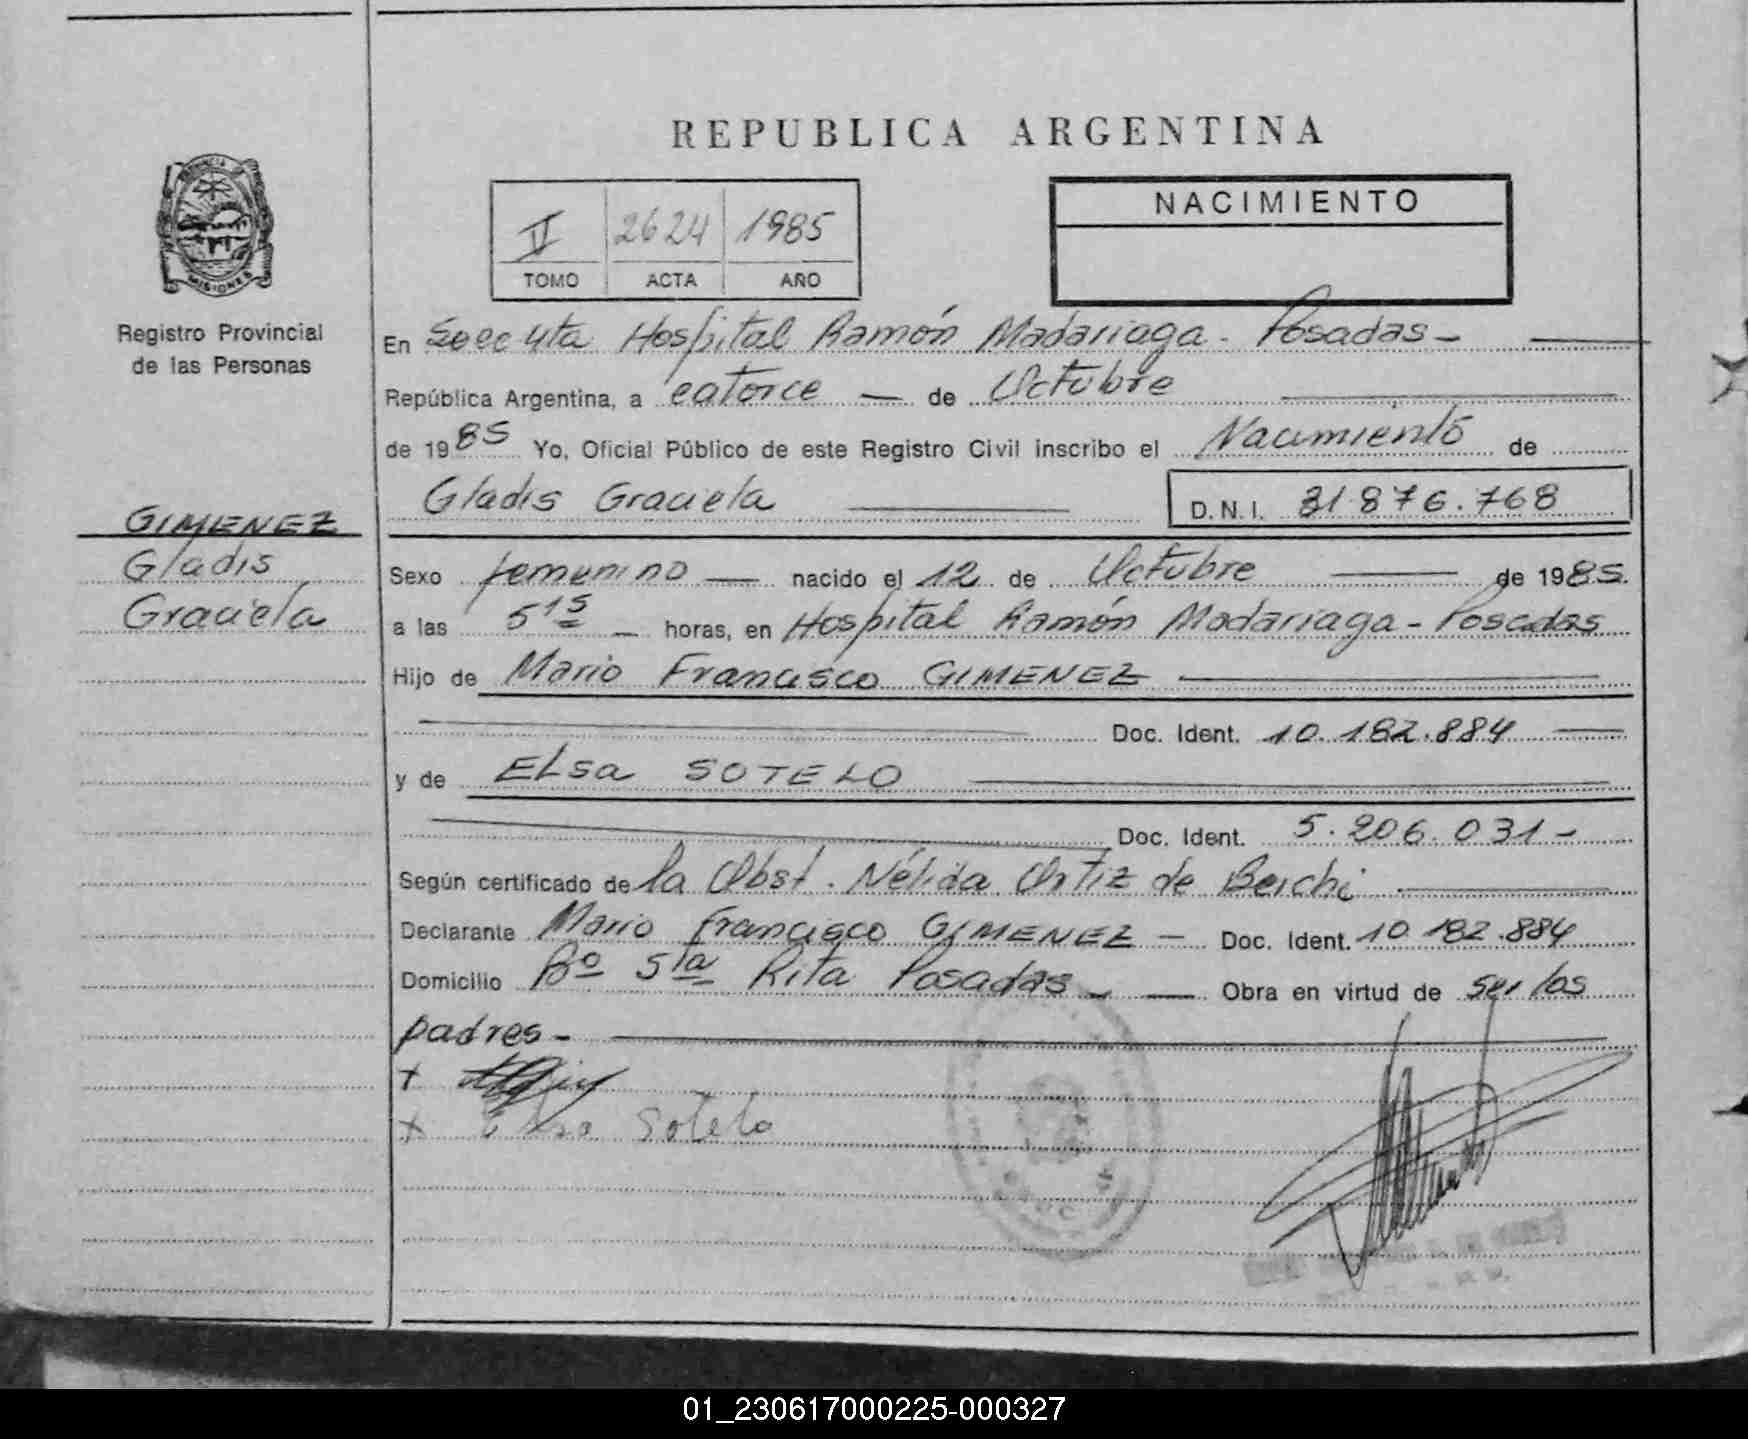 REPUBLICA ARGENTINA
PROVINCIA DE
MISIONES
Registro Provincial
de las Personas
II 2624 1985
TOMO ACTA AÑO
NACIMIENTO
En Secc 4ta Hospital Ramón Madariaga - Posadas -
República Argentina, a catorce — de Octubre
de 1985 Yo, Oficial Público de este Registro Civil inscribo el Nacimiento de
Gladis Graciela D.N.I. 31.876.768
GIMENEZ
Gladis
Graciela
Sexo femenino — nacido el 12 de Octubre — de 1985.
a las 5 15 — horas, en Hospital Ramón Madariaga - Posadas
Hijo de Mario Francisco GIMENEZ
Doc. Ident. 10.182.884 —
y de ELsa SOTELO
Doc. Ident. 5.206.031 -
Según certificado de la Obst. Nélida Ortiz de Berchi
Declarante Mario Francisco GIMENEZ — Doc. Ident. 10.182.884
Domicilio Bº Sta Rita Posadas - — Obra en virtud de ser los
padres -
+
+ Elsa Sotelo
01_230617000225-000327